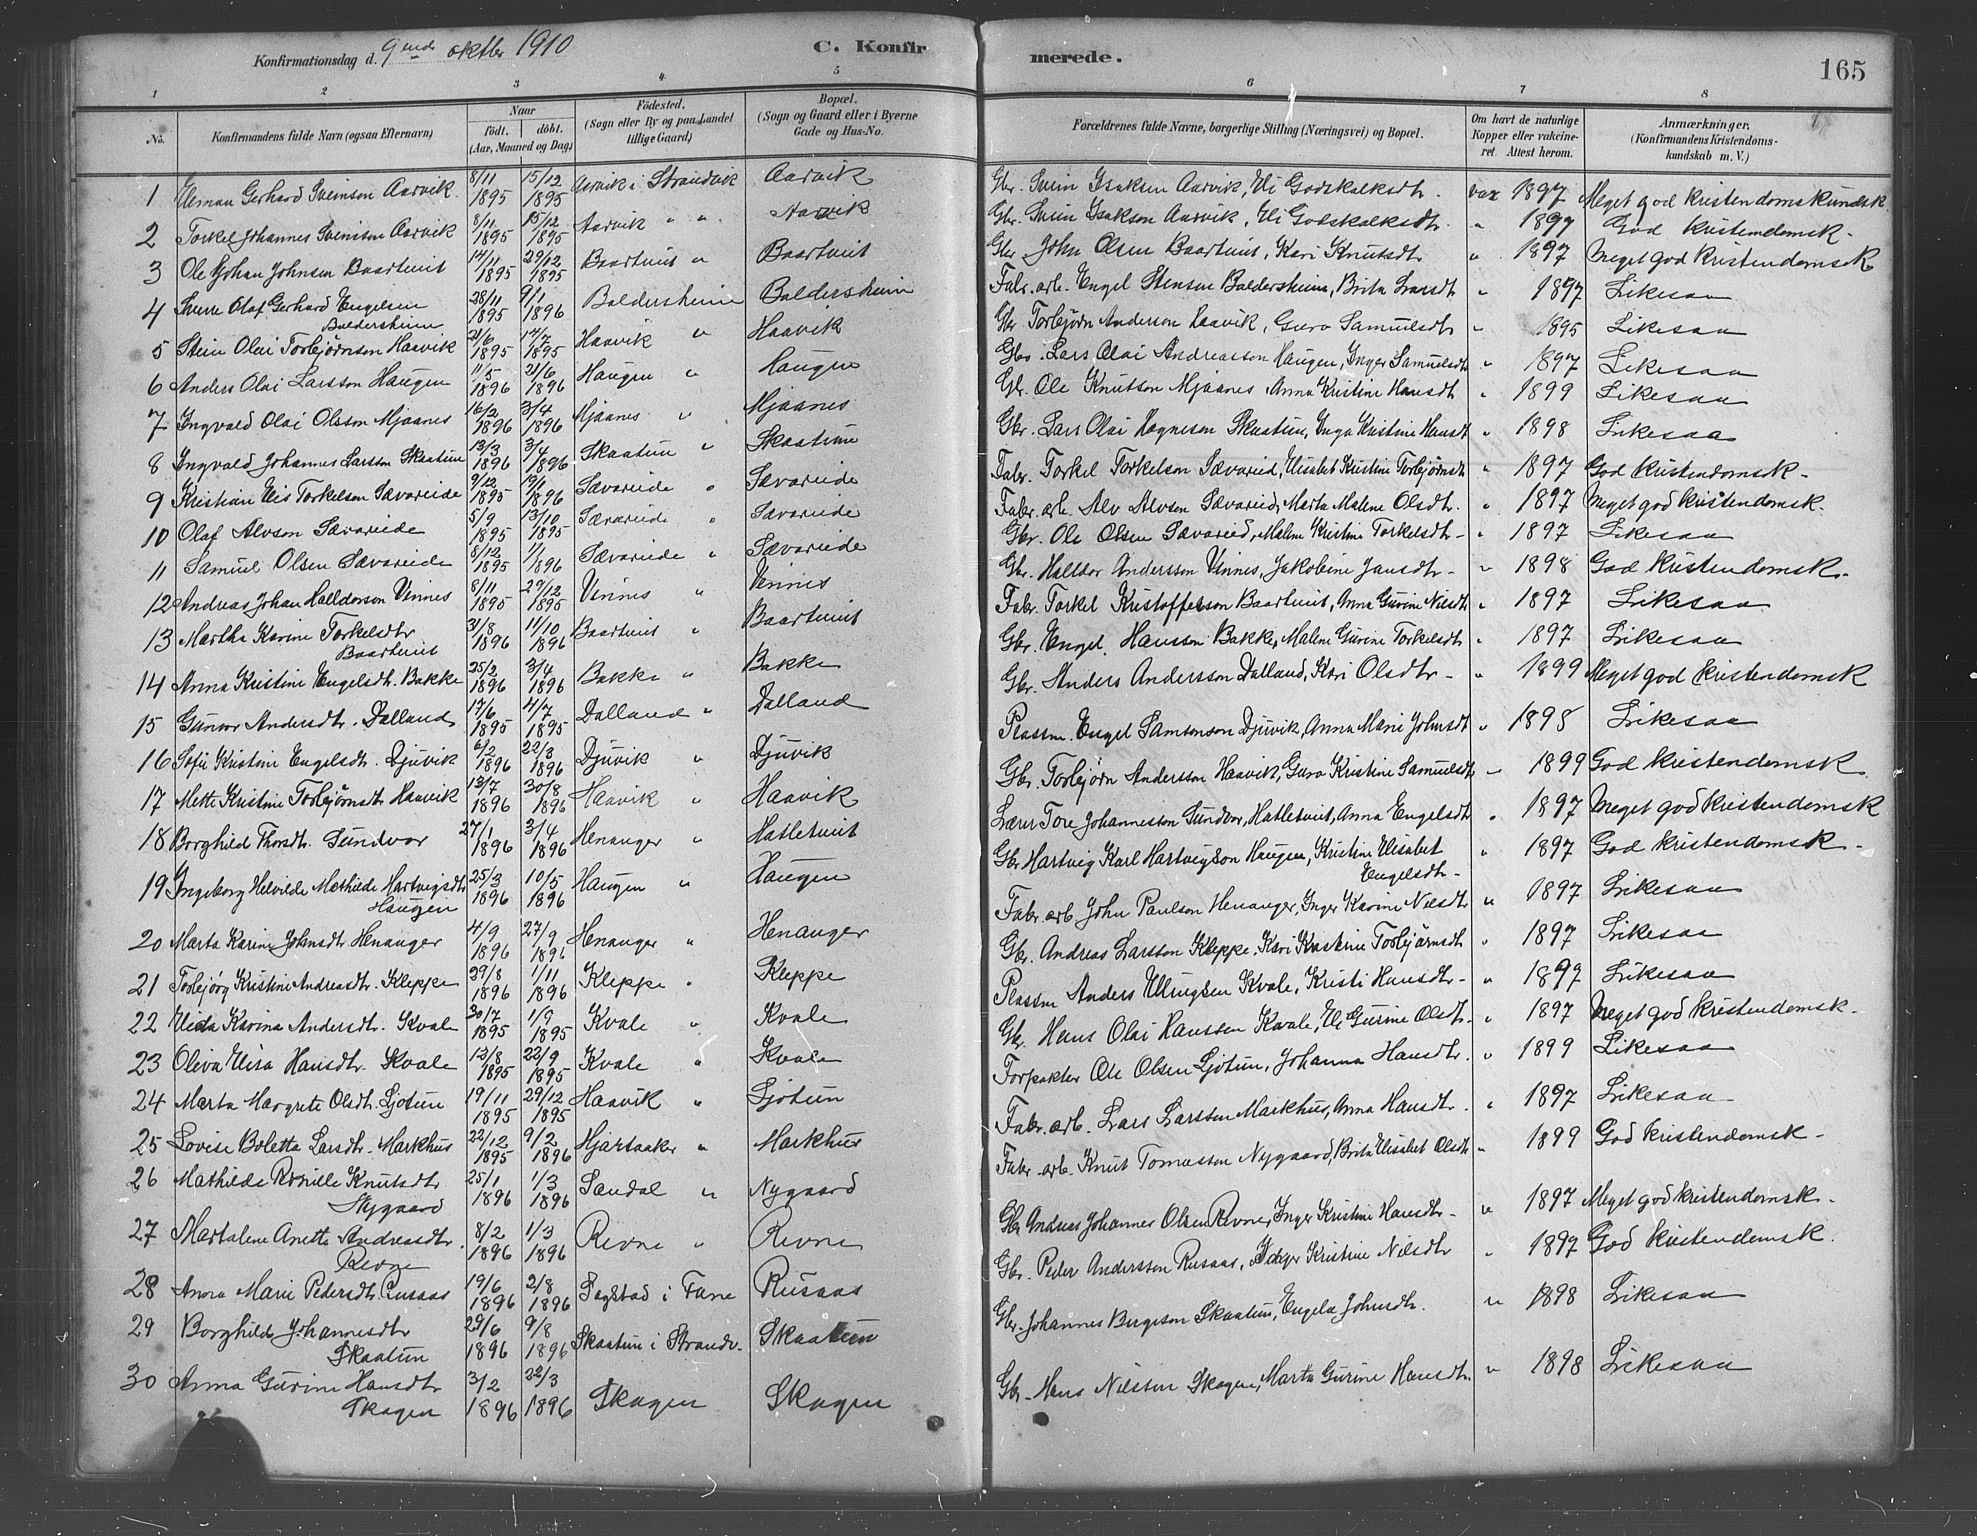 Konfirmationsdag d. 9nde oktbr 1910 C. Konfirmerede. 165
1 2 3 4 5 6 7 8
No. Konfirmandens fulde Navn (ogsaa Efternavn) Naar født. døbt. (Aar, Maaned og Dag) Fødested. (Sogn eller By og paa Landet tillige Gaard.) Bopæl. (Sogn og Gaard eller i Byerne Gade og Hus-No. Forældrenes fulde Navne, borgerlige Stilling (Næringsvei) og Bopæl. Om havt de naturlige Kopper eller vakcineret. Attest herom. Anmærkninger. (Konfirmandens Kristendomskundskab m. V.)
1 Gerhard Sveinson Aarvik 8/11 1895 15/12 1895 Aarvik i Strandvik Aarvik Gbr. Svein Isaksen Aarvik, Eli Godskalksdtr. vax 1897 Meget god kristendomskundsk.
2 Torkel Johannes Sveinson Aarvik 8/11 1895 15/12 1895 Aarvik " " Aarvik Gbr. Svein Isakson Aarvik, Eli Godskalksdtr. " 1897 God kristendomsk.
3 Ole Johan Johnsen Baartveit 14/11 1895 29/12 1895 Baartveit " Baartveit Gbr John Olsen Baartveit, Kari Knutsdtr " 1897 Meget god kristendomsk
4 Sverre Olaf Gerhard Engelsen Baldersheim 28/11 1895 9/1 1896 Baldersheim Baldersheim Fabr. arb. Engel Stenson Baldersheim, Brita Larsdtr " 1897 Likesaa
5 Stein Olai Torbjørnson Haavik 21/6 1895 14/7 1895 Haavik " Haavik Gbr Torbjørn Anderson Haavik, Guro Samuelsdtr " 1895 Likesaa
6 Anders Olai Larsson Haugen 11/5 1896 21/6 1896 Haugen " Haugen Gbr. Lars Olai Andreasson Haugen, Inger Samuelsdtr " 1897 Likesaa
7 Ingvald Olai Olsson Mjaanes 16/2 1896 3/4 1896 Mjaanes " Mjaanes Gbr. Ole Knutson Mjaanes, Anna Kristine Hansdtr " 1899 Likesaa
8 Ingvald Johannes Larsson Skaatun 13/3 1896 3/4 1896 Skaatun " Skaatun Gbr. Lars Olai Hogneson Skaatun, Inga Kristine Hansdt " 1898 Likesaa
9 Kristian Elis Torkelson Sævareide 9/12 1895 19/1 1896 Sævareide " Sævareide Fabr. Torkel Torkelson Sævareid, Elisabet Kristine Torbjørnsdt " 1897 God kristendomsk.
10 Olaf Alvson Sævareide 5/9 1895 13/10 1895 Sævareide " Sævareide Fabr. arb. Alv Alvson Sævareid, Marta Malene Olsdtr. " 1897 Meget god kristendomsk.
11 Samuel Olsen Sævareide 8/12 1895 1/1 1896 Sævareide " Sævareide Gbr. Ole Olsen Sævareid, Malene Kristine Torkelsdtr. " 1897 Likesaa
12 Andreas Johan Halldorson Vinnes 8/11 1895 29/12 1895 Vinnes " Vinnes Gbr. Halldor Andersson Vinnes, Jakobine Jansdtr. " 1898 God kristendomsk.
13 Martha Karine Torkelsdtr Baartveit 31/8 1896 11/10 1896 Baartveit " Baartveit Fabr. Torkel Kristofferson Baartveit, Anna Gurine Nilsdtr " 1897 Likesaa
14 Anna Kristine Engelsdt. Bakke 25/2 1896 3/4 1896 Bakke " Bakke Gbr. Engel Hansson Bakke, Malene Gurine Torkelsdtr " 1897 Likesaa
15 Gunvor Andersdtr. Dalland 17/6 1895 4/7 1895 Dalland " Dalland Gbr. Anders Andersson Dalland, Kari Olsdtr. " 1899 Meget god kristendomsk
16 Sofie Kristine Engelsdt. Djuvik 6/2 1896 22/3 1896 Djuvik " Djuvik Plassm. Engel Samsonson Djuvik, Anna Marie Johnsdt " 1898 Likesaa
17 Mette Kristine Torbjørnsdt. Haavik 13/7 1896 30/8 1896 Haavik " Haavik Gbr. Torbjørn Andersson Haavik, Guro Kristine Samuelsdt " 1899 God kristendomsk
18 Borghild Thorsdt. Sundvor 27/1 1896 3/4 1896 Henanger " Hatletveit Lærer Tore Johannesson Sundvor, Hatletveit, Anna Engelsdt " 1897 Meget god kristendomsk
19 Ingeborg Helvilde Mathilde Hartvigsdtr Haugen 25/3 1896 10/5 1896 Haugen " Haugen Gbr Hartvig Karl Hartvigson Haugen, Kristine Elisabet Engelsdtr. " 1897 God kristendomsk.
20 Marta Karine Johnsdt. Henanger 4/9 1896 27/9 1896 Henanger " Henanger Fabr. arb. John Paulson Henanger, Inger Karine Nilsdtr " 1897 Likesaa
21 Torbjørg Kristine Andreasdt. Kleppe 29/8 1896 1/11 1896 Kleppe " Kleppe Gbr. Andreas Larsson Kleppe, Kari Kristine Torbjørnsdt " 1897 Likesaa
22 Karina Andersdt. Kvale 30/7 1895 1/9 1895 Kvale " Kvale Plassm Anders Ellingsen Kvale, Kristi Hansdtr. " 1897 Likesaa
23 Oliva Elisa Hansdtr. Kvale 13/8 1895 22/9 1895 Kvale " Kvale Gbr. Hans Olai Hansson Kvale, Eli Gurine Olsdtr. " 1897 Meget god kristendomsk.
24 Marta Margrete Olsdt. Ljotun 19/11 1895 29/12 1895 Haavik " Ljotun Forpakter Ole Olsen Ljotun, Johanna Hansdtr. " 1899 Likesaa
25 Lovise Boletta Larsdt. Markhus 22/12 1895 9/2 1896 Hjartaaker " Markhus Fabr. arb. Lars Larsson Markhus, Anna Hansdtr. " 1897 Likesaa
26 Mathilde Knutsdtr Nygaard 25/1 1896 1/3 1896 Sandal " Nygaard Fabr. arb. Knut Tomasson Nygaard, Brita Elisabet Olsdtr " 1899 God kristendomsk.
27 Martalene Anette Andreasdtr. Revne 8/2 1896 1/3 1896 Revne " Revne Gbr Andreas Johannes Olsen Revne, Inger Kristine Hansdtr. " 1897 Meget god kristendomsk.
28 Anna Marie Pedersdt. Rusaas 19/6 1896 2/8 1896 Søgstad i Fane Rusaas Gbr. Peder Andersson Rusaas, Inger Kristine Nilsdtr " 1897 God kristendomsk.
29 Borghild Johannesdtr Skaatun 29/6 1896 9/8 1896 Skaatun i Strandv. Skaatun Gbr. Johannes Bergeson Skaatun, Engela Johnsdtr. " 1898 Likesaa
30 Anna Gurine Hansdtr Skogen 3/2 1896 22/3 1896 Skogen Skogen Gbr. Hans Nilsson Skogen, Marta Gurine Hansdtr. " 1898 Likesaa